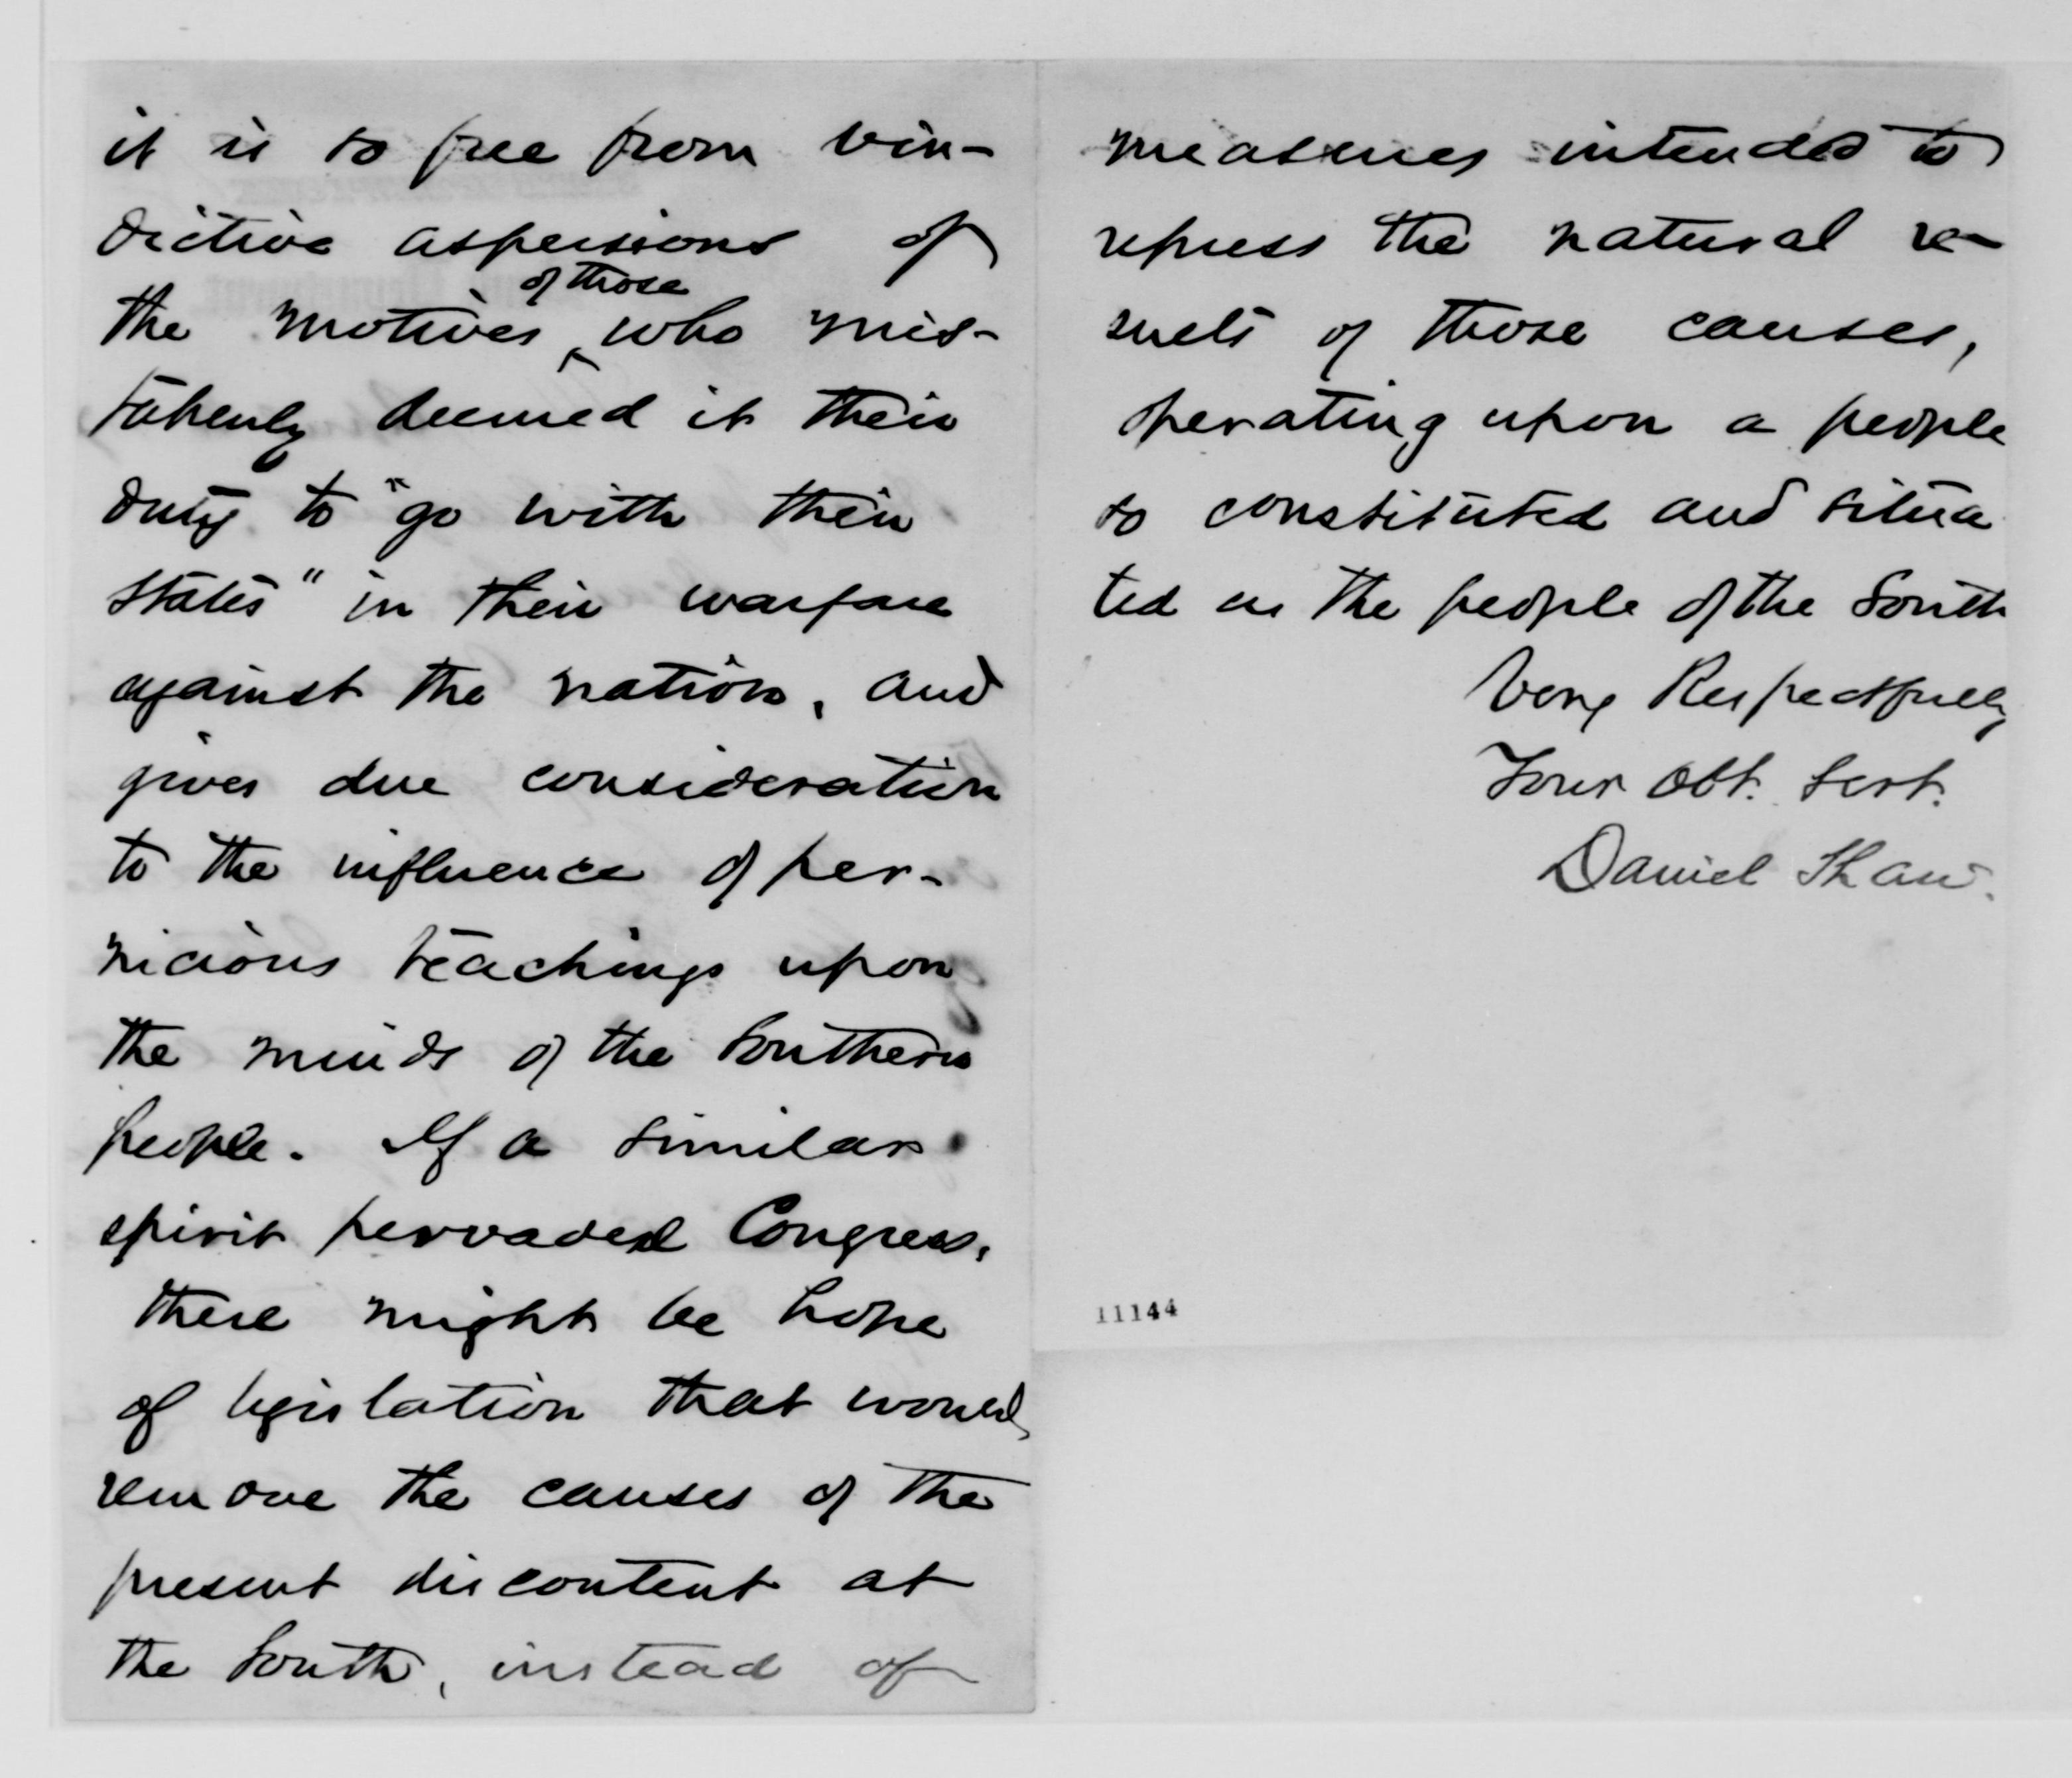 it is so free from vin-
dictive aspersions of
of those
the motives ‸ who mis-
takenly deemed it their
duty to "go with their
states" in their warfare
against the nation, and
gives due consideration
to the influence of per-
nicious teachings upon
the minds of the Southern
people. If a similar
spirit pervaded Congress,
there might be hope
of legislation that would
remove the causes of the
present discontent at
the South, instead of
measures intended to
repress the natural re-
sults of those causes,
operating upon a people
so constituted and situa
ted as the people of the South
Very Respectfully
Your Obt. Servt.
Daniel Shaw.
11144